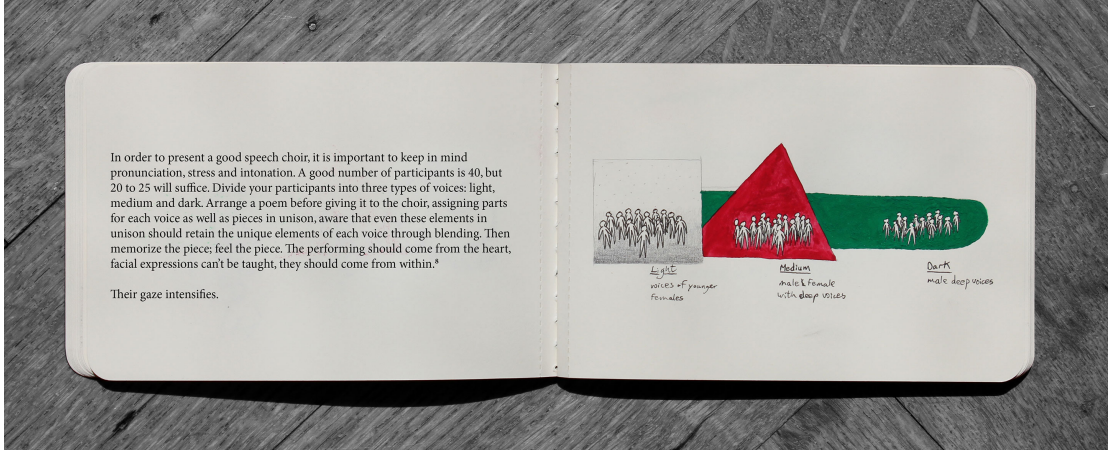 In order to present a good speech choir, it is important to keep in mind
pronunciation, stress and intonation. A good number of participants is 40, but
20 to 25 will suffice. Divide your participants into three types of voices: light,
medium and dark. Arrange a poem before giving it to the choir, assigning parts
for each voice as well as pieces in unison, aware that even these elements in
unison should retain the unique elements of each voice through blending. Then
memorize the piece; feel the piece. The performing should come from the heart,
facial expressions can’t be taught, they should come from within.⁸
Their gaze intensifies.
Light
voices of younger
females
Medium
male & female
with deep voices
Dark
male deep voices